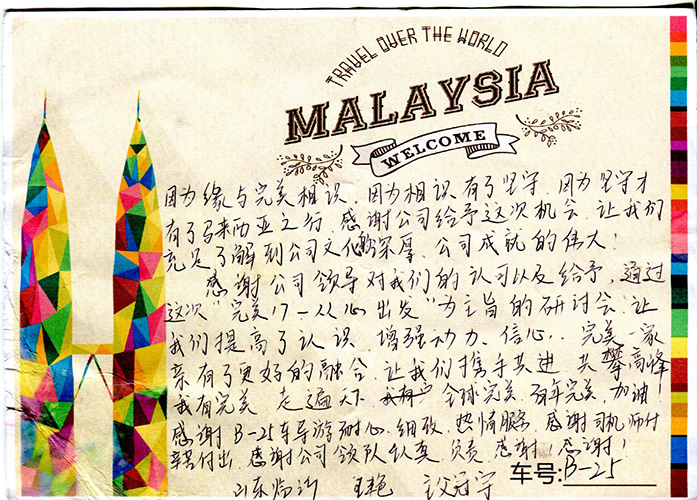 TRAVEL OVER THE WORLD
MALAYSIA
WELCOME
因为缘与完美相识,因为相识有了坚守,因为坚守才
有了马来西亚之行,感谢公司给予这次机会,让我们
充足了解到公司文化的深厚,公司成就的伟大!
感谢公司领导对我们的认可以及给予,通过
这次“完美17-从心出发”为主旨的研讨会,让
我们提高了认识,增强动力、信心,完美一家
亲有了更好的融合,让我们携手共进 共攀高峰
我有完美 走遍天下 全球完美 百年完美 加油!
感谢B-25车导游耐心、细致、热情服务,感谢司机师付
辛苦付出,感谢公司领队认真、负责,感谢!感谢!
车号:B-25
山东临沂 王艳